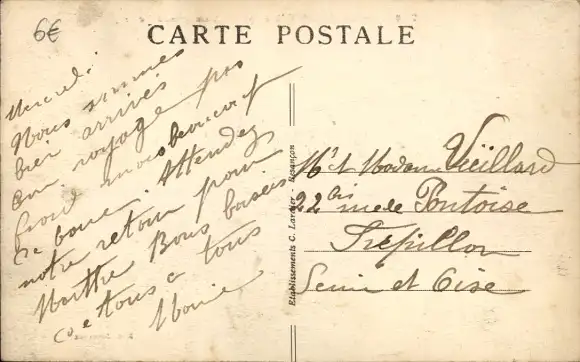 6€
CARTE POSTALE
Mercredi.
Nous sommes
bien arrivés
bon voyage pas
froid mais beaucoup
de boue. Attendez
notre retour pour
Marthe Bons baisers
à tous
Marie
Mr et Madame Vieillard
22 bis rue de Pontoise
Frépillon
Seine et Oise
Etablissements C. Lardier - Besançon